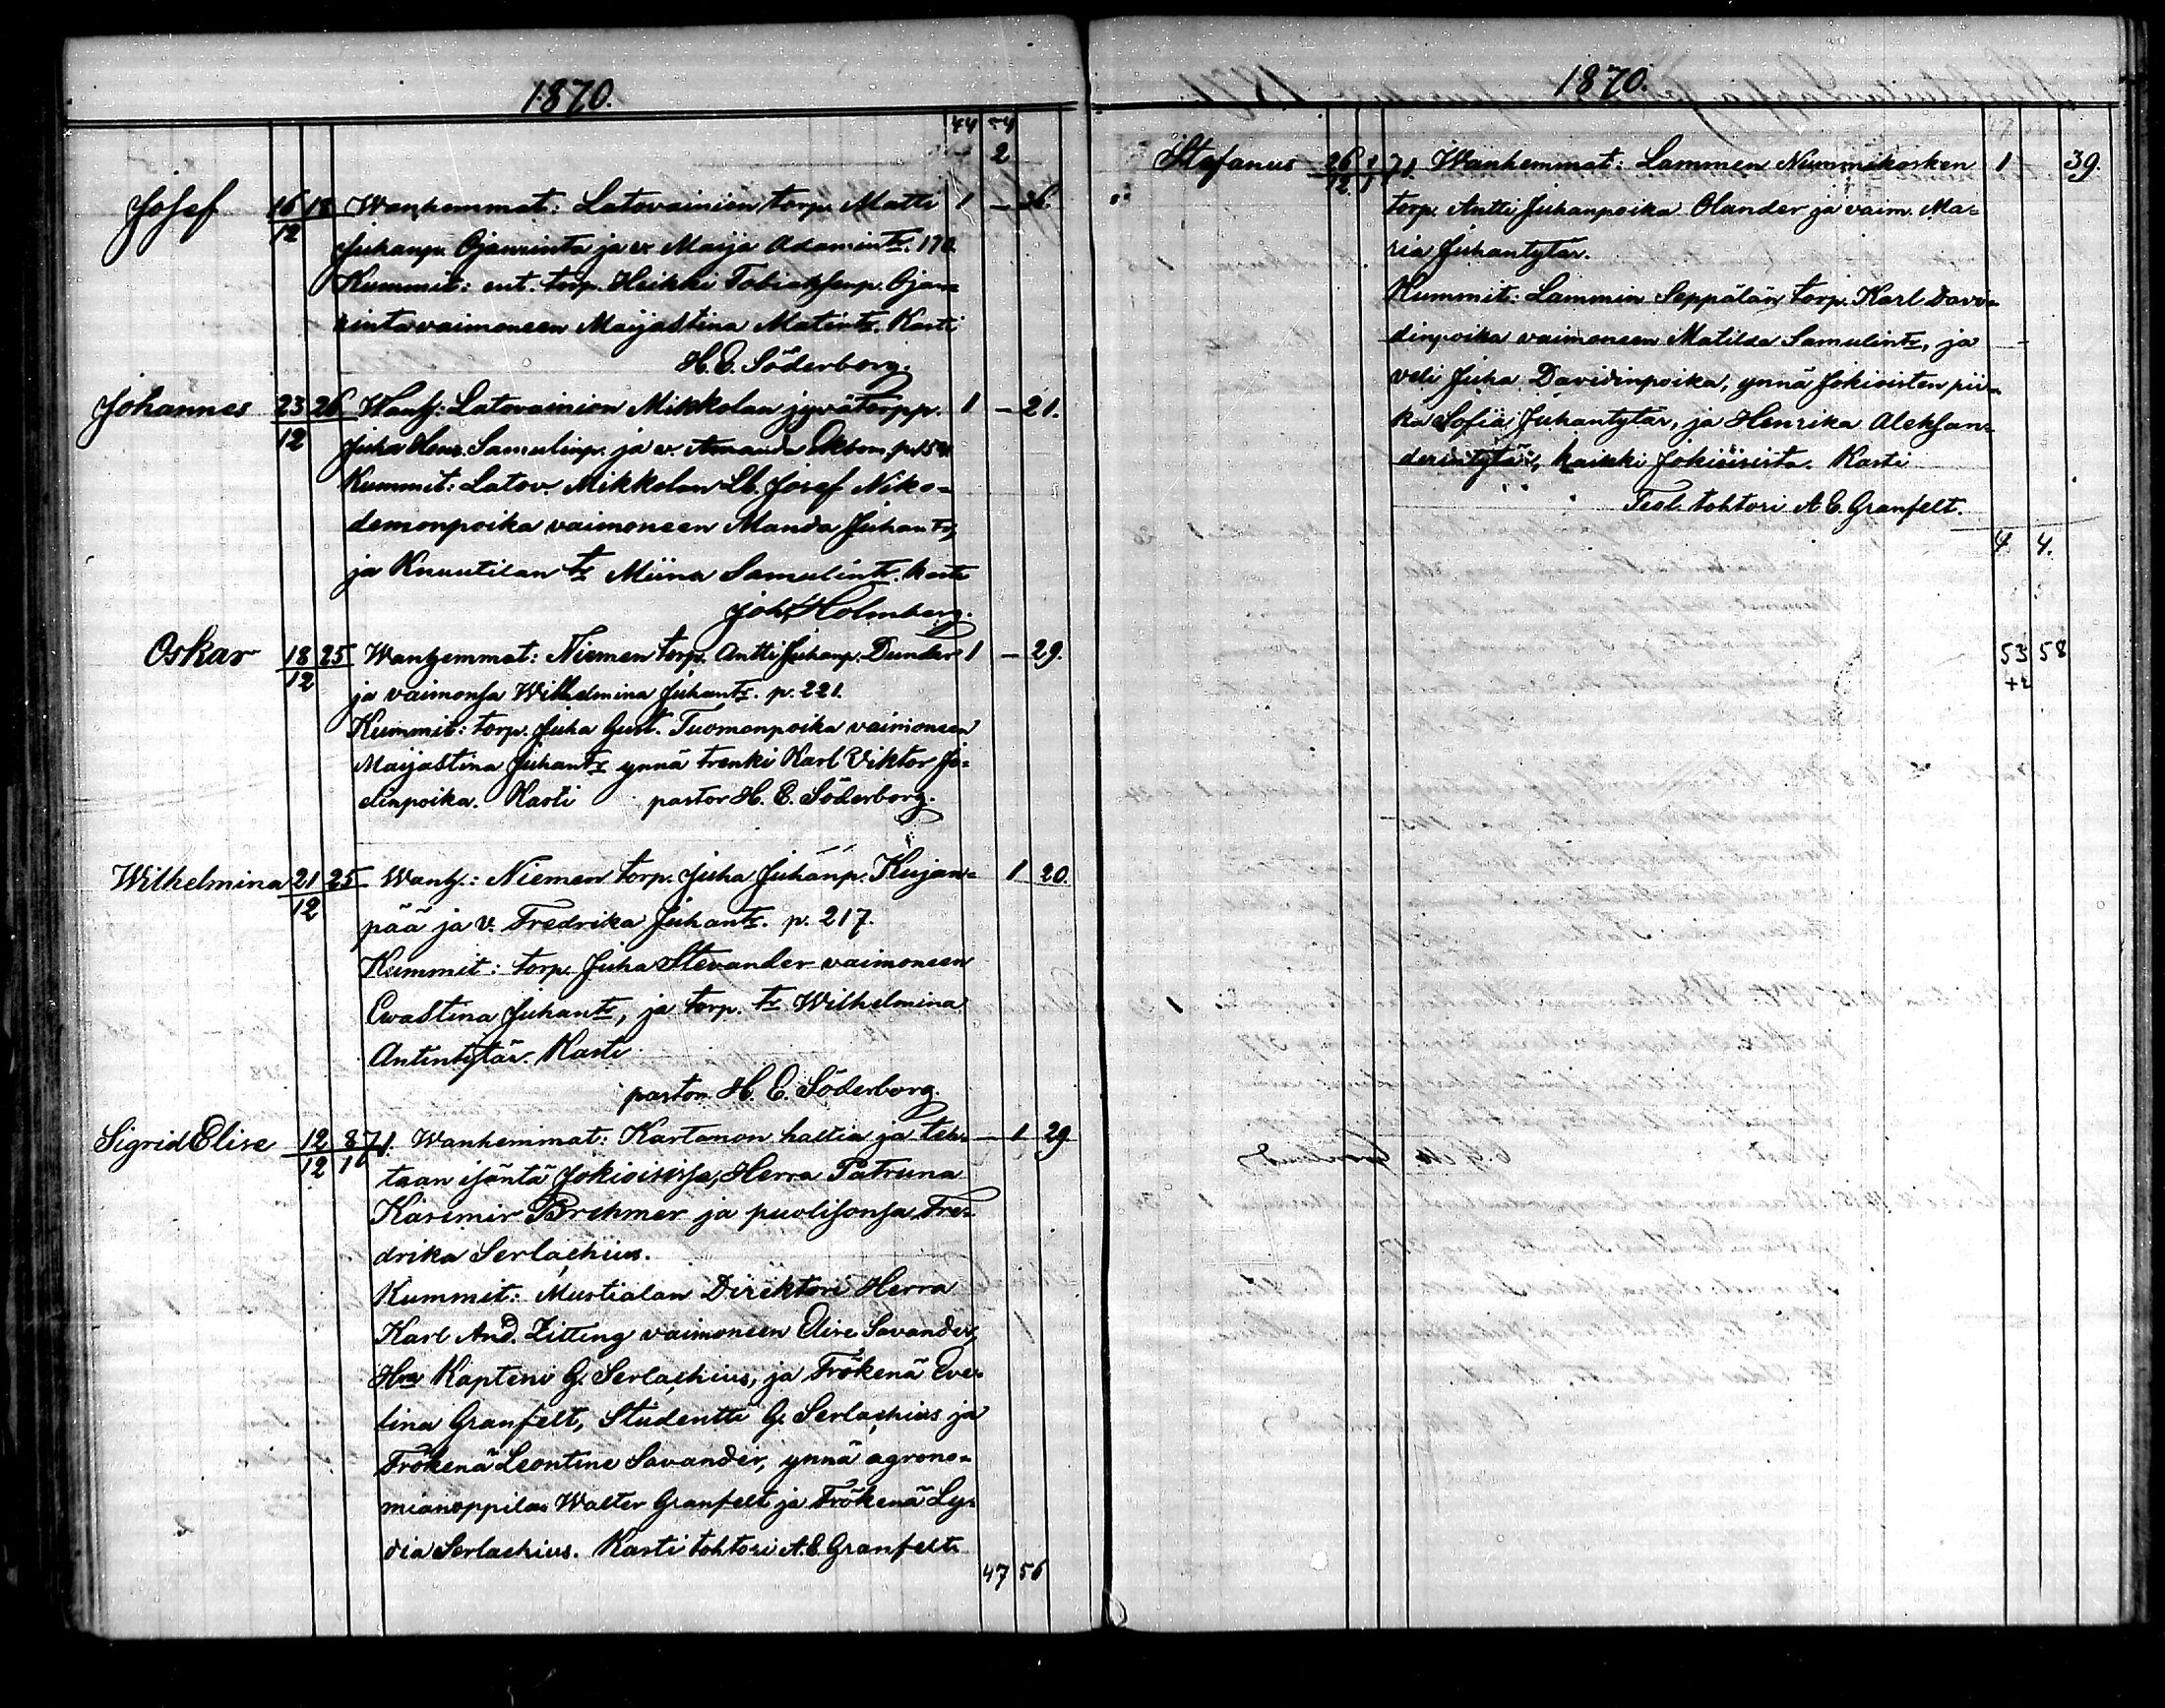 1870.
44
2
Josef 16/12 18 Wanhemmat: Latovainion torp. Matti 1 — 26.
Juhanp. Ojanrinta ja v. Maija Adamintr. 170.
Kummit: ent. torp. Heikki Tobiaksenp. Ojan=
rinta vaimoneen Maijastina Matintr. Kasti
H. E. Söderborg.
Johannes 23/12 26 Wanh: Latovainion Mikkolan jyvätorpp. 1 — 21.
Juha Samulinp. ja v. Amanda Ekbom, p. 154
Kummit: Latov. Mikkolan Lb. Josef Niko=
demonpoika vaimoneen Manda Juhantr,
ja Knuutilan tr Miina Samulintr. Kasti
Joh. Holmberg.
Oskar 18/12 25 Wanhemmat: Niemen torp. Antti Juhanp. Dunder 1 — 29.
ja vaimonsa Wilhelmina Juhantr. p. 221.
Kummit: torp. Juha Gust. Tuomonpoika vaimoneen
Maijastina Juhantr ynnä trenki Karl Viktor Jo=
elinpoika. Kasti pastor H. E. Söderborg.
Wilhelmina 21/12 25 Wanh.: Niemen torp. Juha Juhanp. Kujan= 1 20.
pää ja v. Fredrika Juhantr. p. 217.
Kummit: torp. Juha Stevander vaimoneen
Evastina Juhantr, ja torp. tr Wilhelmina
Antintytär. Kasti
pastor H. E. Söderborg.
Sigrid Elise 12/12 8/1 71. Wanhemmat: Kartanon haltia ja teh= — 1 29
taan isäntä Jokioisissa, Herra Patruna
Kasimir Brehmer ja puolisonsa Fre=
drika Serlachius.
Kummit: Mustialan Direktöri Herra
Karl And. Zitting vaimoneen Elise Savander,
Hra Kapteni G. Serlachius, ja Frökenä Eve=
lina Granfelt, Studentti G. Serlachius ja
Frökenä Leontine Savander, ynnä agrono=
mianoppilas Walter Granfelt ja Frökenä Ly=
dia Serlachius. Kasti tohtori A. E. Granfelt.
47 56
1870.
Stefanus 26/12 71. Wanhemmat: Lammen Nummikosken 1 39.
torp. Antti Juhanpoika Olander ja vaim. Ma=
ria Juhantytär.
Kummit: Lammin Seppälän torp. Karl Davi=
dinpoika vaimoneen Matilda Samulintr, ja
veli Juha Davidinpoika, ynnä Jokioisten pii=
ka Sofia Juhantytär, ja Henrika Aleksan=
derintytär, kaikki Jokioisista. Kasti
Teol. tohtori A. E. Granfelt.
4 4.
53 58